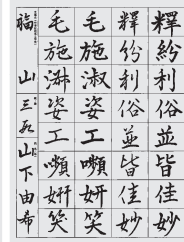 釋紛利俗並皆佳妙
釋紛利俗並皆佳妙
毛施淑姿工嚬妍笑
毛施淑姿工嚬妍笑
福山 三段 山下由希